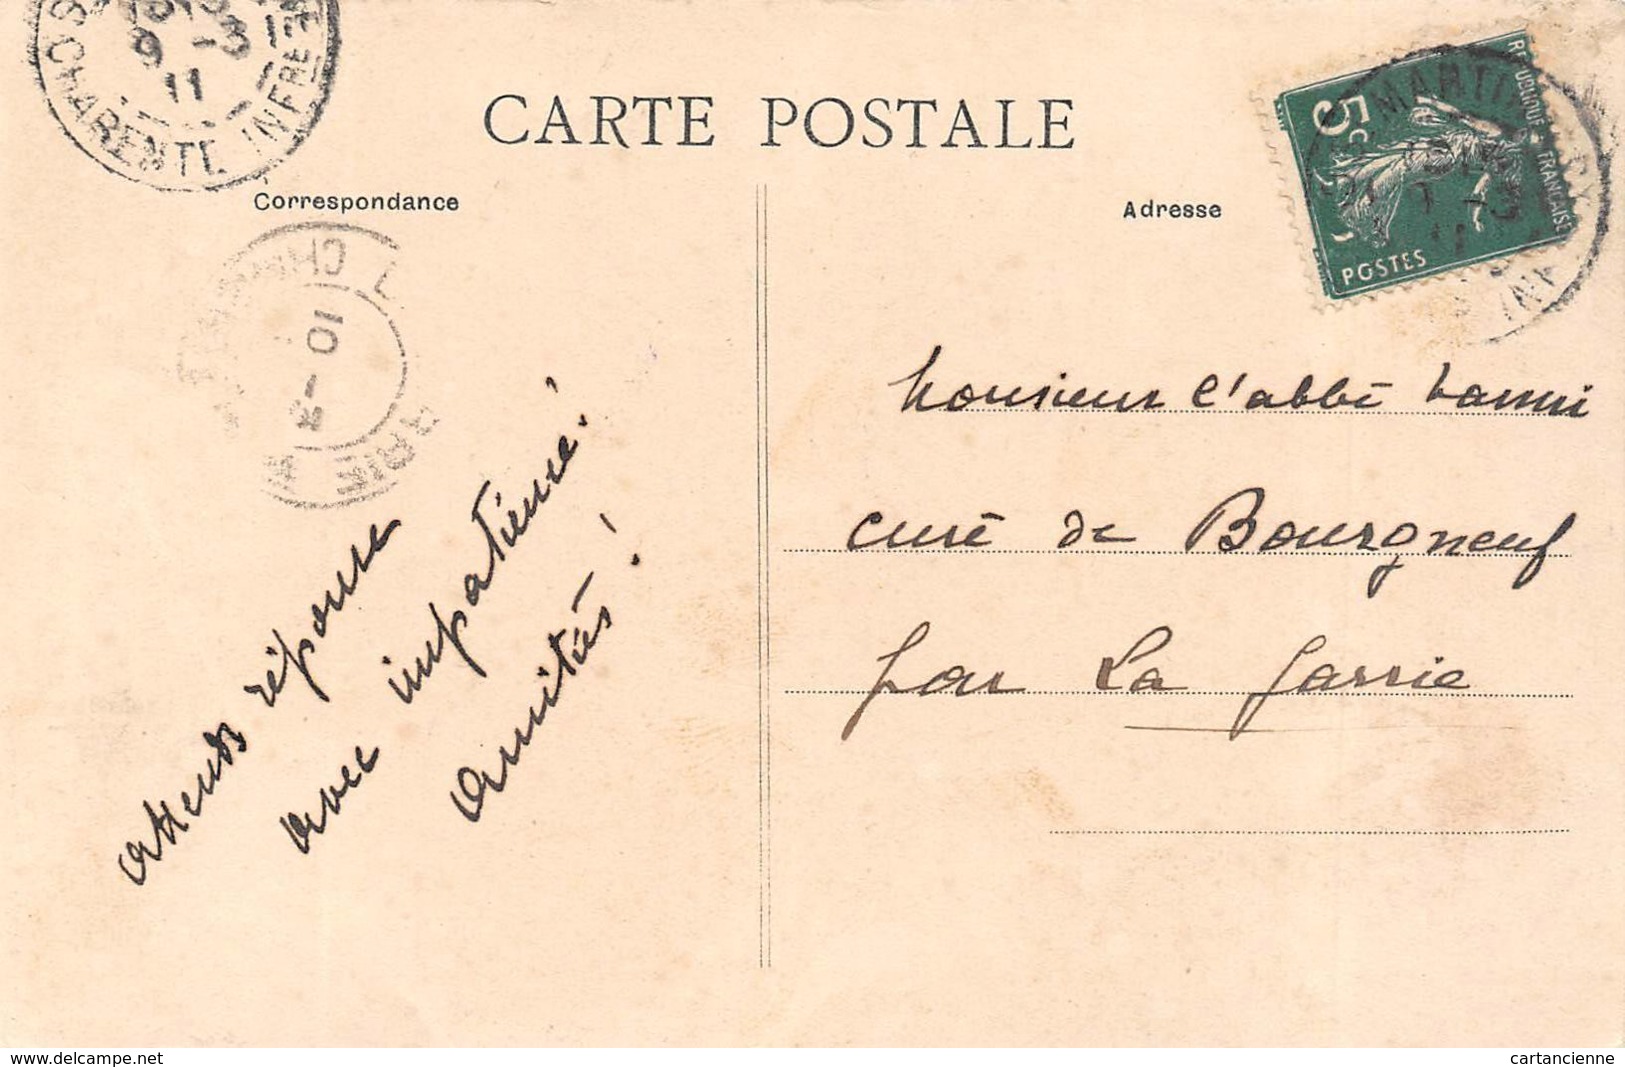 CARTE POSTALE
Correspondance
Adresse
9 -3
11
CHARENTE INFRE
10 -
RÉPUBLIQUE FRANÇAISE
5c
POSTES
Monsieur l'abbé
curé de Bourgneuf
par La Jarrie
Attends réponse
avec impatience!
Amitiés!
www.delcampe.net
cartancienne